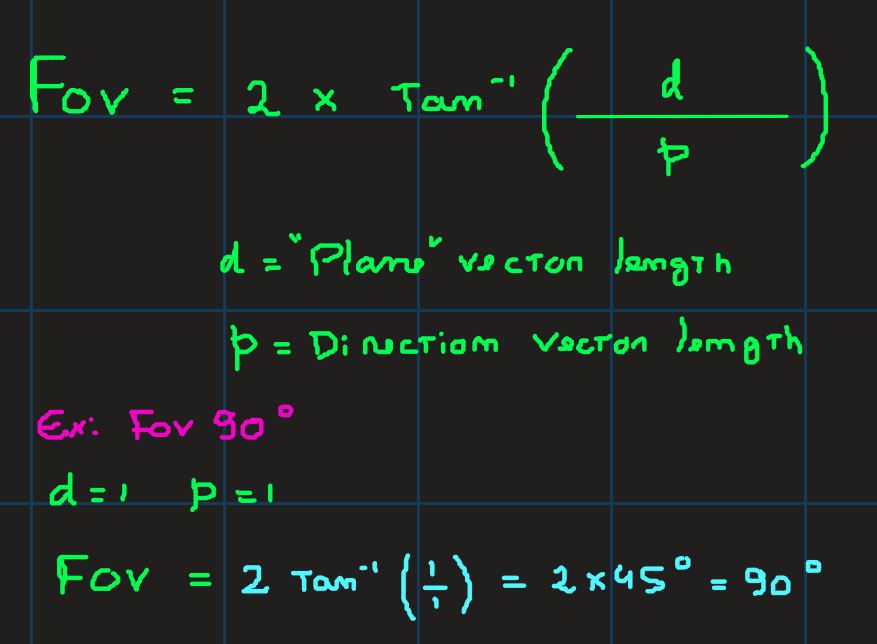 Fov = 2 x Tan⁻¹ (d / p)
d = "Plane" vector length
p = Direction vector length
Ex: Fov 90°
d = 1 p = 1
Fov = 2 Tan⁻¹ (1/1) = 2 x 45° = 90°